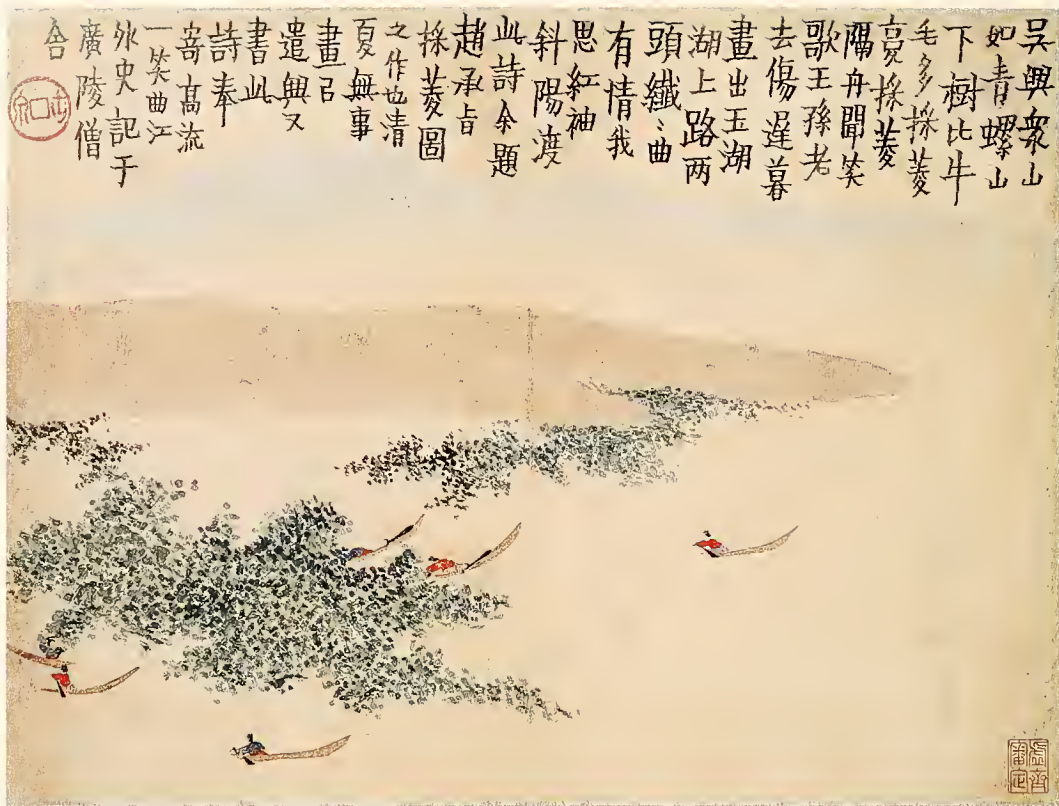 吳興衆山
如青螺山
下樹比牛
毛多採菱
採菱
隔舟聞笑
歌王孫老
去傷遲暮
畫出玉湖
湖上路兩
頭纖〻曲
有情我
思紅袖
斜陽渡
此詩余題
趙承旨
採菱圖
之作也清
夏無事
畫已
遣興又
書此
詩奉
寄髙流
一笑曲江
外史記于
廣陵僧
舍
虛齋
審定